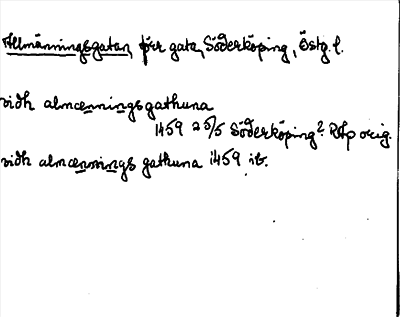 Allmänningsgatan, förr gata, Söderköping, Östg. l.
vidh almenningsgathuna
1459 25/5 Söderköping? RAp orig.
vidh almennings gathuna 1459 ib.